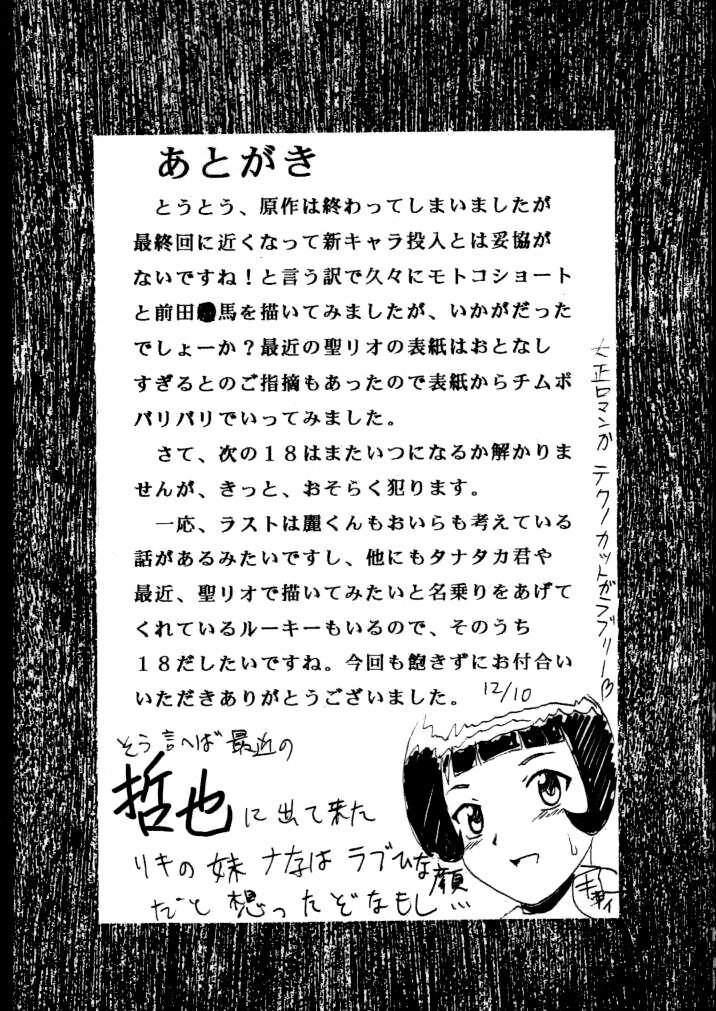 あとがき
とうとう、原作は終わってしまいましたが
最終回に近くなって新キャラ投入とは妥協が
ないですね！と言う訳で久々にモトコショート
と前田馬を描いてみましたが、いかがだった
でしょーか？最近の聖リオの表紙はおとなし
すぎるとのご指摘もあったので表紙からチムポ
バリバリでいってみました。
さて、次の１８はまたいつになるか解かりま
せんが、きっと、おそらく犯ります。
一応、ラストは麗くんもおいらも考えている
話があるみたいですし、他にもタナタカ君や
最近、聖リオで描いてみたいと名乗りをあげて
くれているルーキーもいるので、そのうち
１８だしたいですね。今回も飽きずにお付合い
いただきありがとうございました。 12/10
大正ロマンガ テクノカットがラブリー♡
そう言へば最近の
哲也に出て来た
リキの妹ナナはラブひな顔
だと想ったぞなもし…